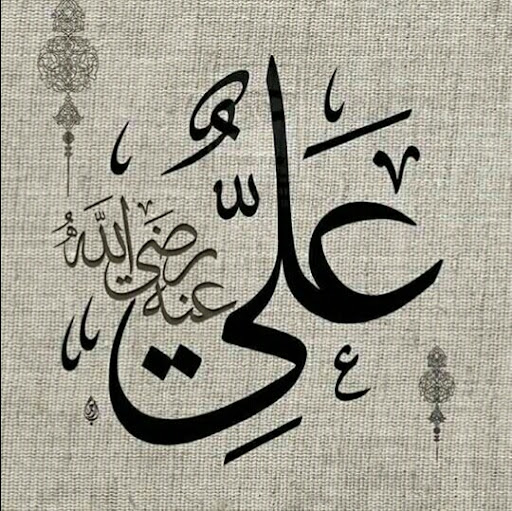 عَلِيٌّ
رَضِيَ اللَّهُ عنه